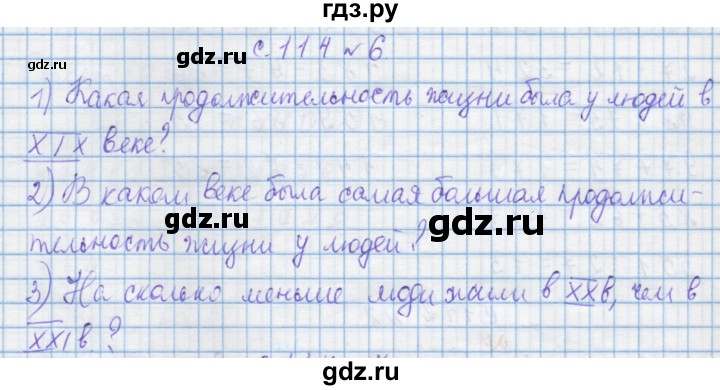 гдз.ру
gdz.ru gdz.ru gdz.ru
с. 114 № 6.
1) Какая продолжительность жизни была у людей в
XIX веке?
gdz.ru gdz.ru
2) В каком веке была самая большая продолжи-
тельность жизни у людей?
gdz.ru gdz.ru
3) На сколько меньше люди жили в XXв, чем в
XXI в.?
gdz.ru gdz.ru gdz.ru